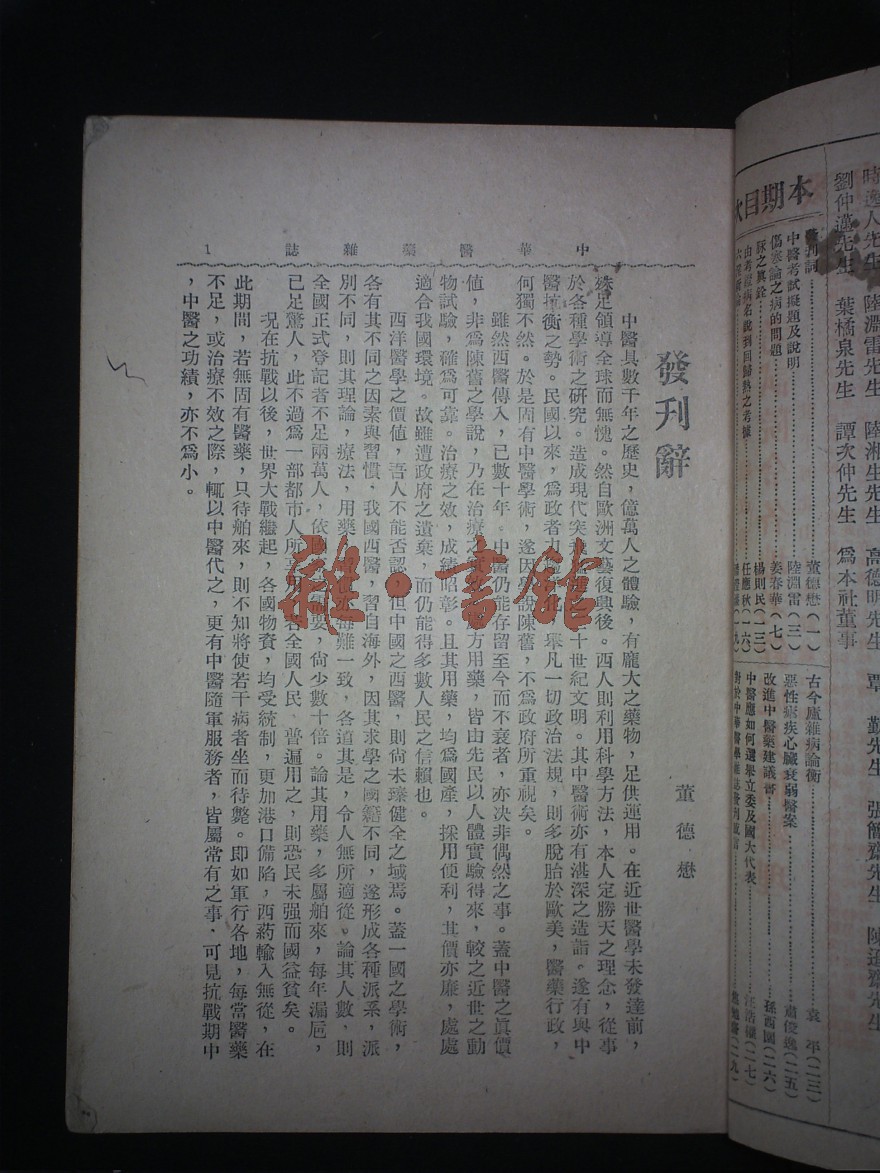 時逸人先生 陸淵雷先生 陸湘生先生 高德明先生 覃勤先生 張簡齋先生 陳遜齋先生
劉仲邁先生 葉橘泉先生 譚次仲先生 為本社董事
本期目次
發刊詞 董德懋(一)
中醫考試擬題及說明 陸淵雷(三)
傷寒論之病的問題 姜春華(七)
脉之眞詮 楊則民(一三)
由考證病名說到回歸熱之考據 任應秋(一六)
古今廬雜病論衡 袁平(二三)
惡性瘧疾心臟衰弱醫案 肅俊逸(二五)
改進中醫藥建議書 孫西園(二六)
中醫應如何選舉立委及國大代表 汪浩權(二七)
中華醫藥雜誌 1
發刊辭
董德懋
中醫具數千年之歷史,億萬人之體驗,有龐大之藥物,足供運用。在近世醫學未發達前,
殊足領導全球而無愧。然自歐洲文藝復興後。西人則利用科學方法,本人定勝天之理念,從事
於各種學術之研究。造成現代突十世紀文明。其中醫術亦有湛深之造詣。遂有與中
醫抗衡之勢。民國以來,為政者力舉凡一切政治法規,則多脫胎於歐美,醫藥行政,
何獨不然。於是固有中醫學術,遂因學說陳舊,不為政府所重視矣。
雖然西醫傳入,已數十年。中醫仍能存留至今而不衰者,亦决非偶然之事。蓋中醫之眞價
值,非為陳舊之學說,乃在治療之方用藥,皆由先民以人體實驗得來,較之近世之動
物試驗,確為可靠。治療之效,成績昭彰。且其用藥,均為國產,採用便利,其價亦廉,處處
適合我國環境。故雖遭政府之遺棄,而仍能得多數人民之信賴也。
西洋醫學之價値,吾人不能否認,但中國之西醫,則尚未臻健全之域焉。蓋一國之學術,
各有其不同之因素與習慣,我國西醫,習自海外,因其求學之國籍不同,遂形成各種派系,派
別不同,則其理論,療法,用藥每難一致,各道其是,令人無所適從。論其人數,則
全國正式登記者不足兩萬人,依要,尙少數十倍。論其用藥,多屬舶來,每年漏巵,
已足驚人,此不過為一部都市人所享用,若全國人民,普遍用之,則恐民未强而國益貧矣。
況在抗戰以後,世界大戰繼起,各國物資,均受統制,更加港口備陷,西药輸入無從,在
此期間,若無固有醫藥,只待舶來,則不知將使若干病者坐而待斃。即如軍行各地,每當醫藥
不足,或治療不效之際,輒以中醫代之,更有中醫隨軍服務者,皆屬常有之事,可見抗戰期中
,中醫之功績,亦不為小。
雜·書館